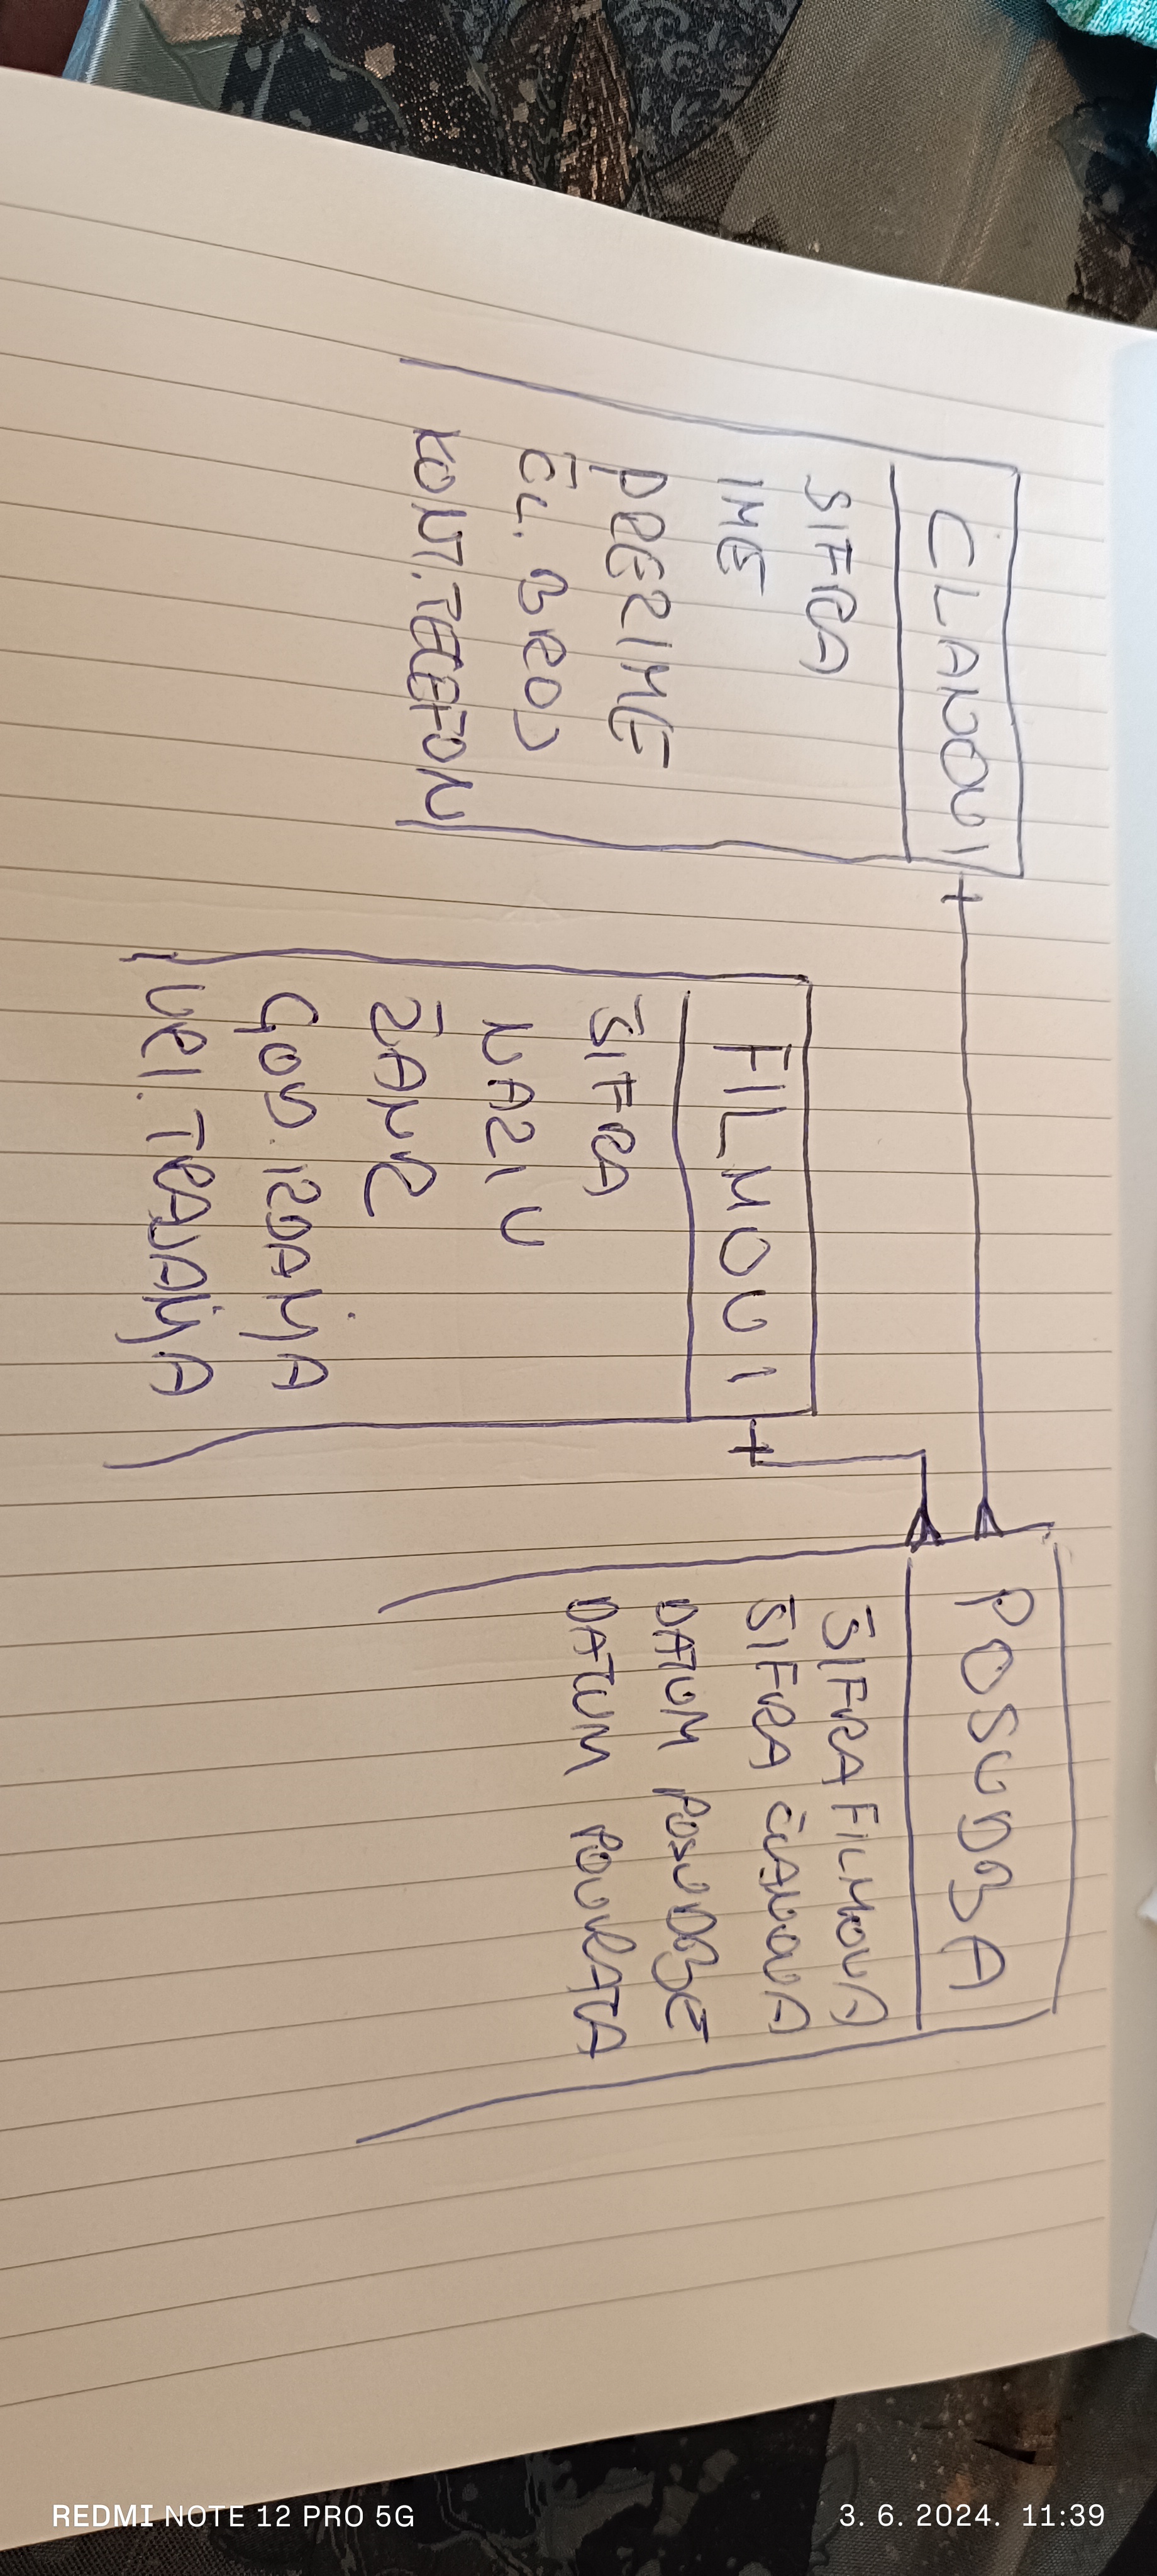 CLANOVI
SIFRA
IME
PREZIME
ČL. BROJ
KONT. TELEFON
FILMOVI
ŠIFRA
NAZIV
ŽANR
GOD. IZDANJA
VRI. TRAJANJA
POSUDBA
ŠIFRA FILMOVA
ŠIFRA ČLANOVA
DATUM POSUDBE
DATUM POVRATA
REDMI NOTE 12 PRO 5G
3. 6. 2024. 11:39